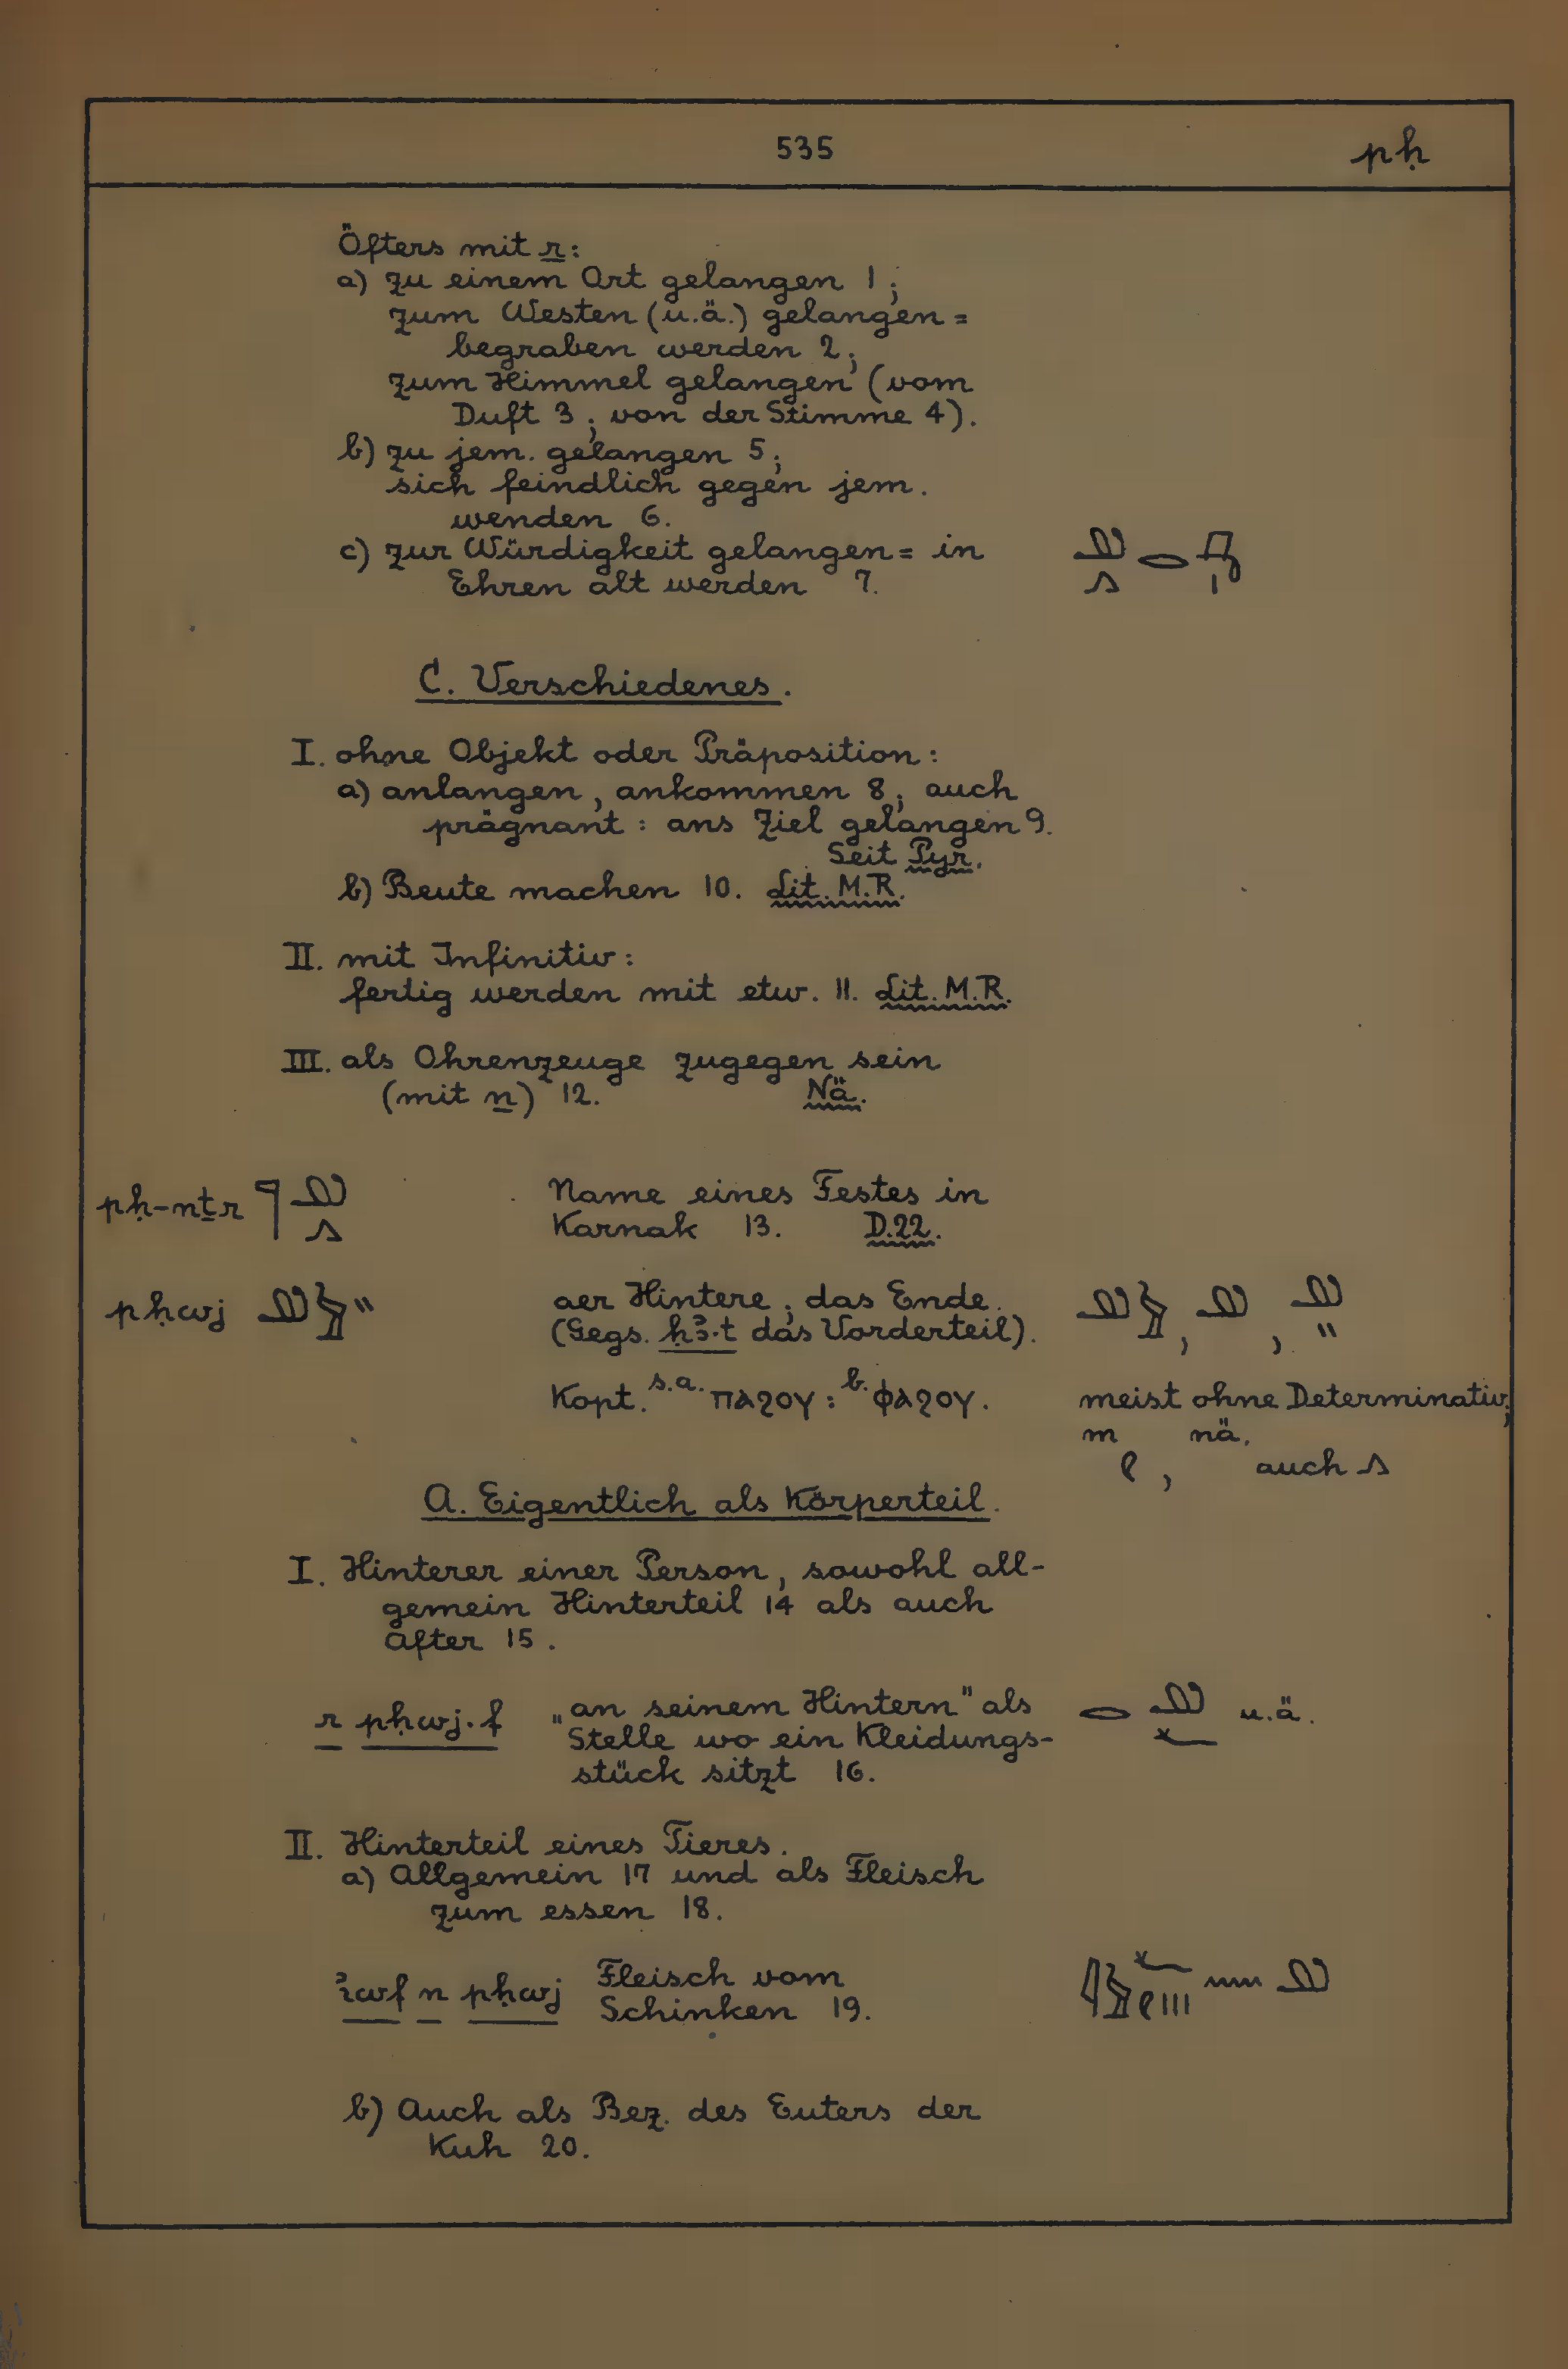 535
pḥ
Öfters mit r:
a) zu einem Ort gelangen 1;
zum Westen (u.ä.) gelangen =
begraben werden 2;
zum Himmel gelangen (vom
Duft 3; von der Stimme 4).
b) zu jem. gelangen 5;
sich feindlich gegen jem.
wenden 6.
c) zur Würdigkeit gelangen = in
Ehren alt werden 7.
C. Verschiedenes.
I. ohne Objekt oder Präposition:
a) anlangen, ankommen 8; auch
prägnant: ans Ziel gelangen 9.
Seit Pyr.
b) Beute machen 10. Lit. M.R.
II. mit Infinitiv:
fertig werden mit etw. 11. Lit. M.R.
III. als Ohrenzeuge zugegen sein
(mit n) 12. Nä.
pḥ-nṯr Name eines Festes in
Karnak 13. D.22.
pḥwj der Hintere; das Ende.
(Gegs. ḥꜣ.t das Vorderteil).
Kopt. s.a. ⲡⲁϩⲟⲩ: b. ⲫⲁϩⲟⲩ.
meist ohne Determinativ;
m nä.
auch
A. Eigentlich als Körperteil.
I. Hinterer einer Person, sowohl all-
gemein Hinterteil 14 als auch
After 15.
r pḥwj.f „an seinem Hintern" als u.ä.
Stelle wo ein Kleidungs-
stück sitzt 16.
II. Hinterteil eines Tieres.
a) Allgemein 17 und als Fleisch
zum essen 18.
ꞽwf n pḥwj Fleisch vom
Schinken 19.
b) Auch als Bez. des Euters der
Kuh 20.